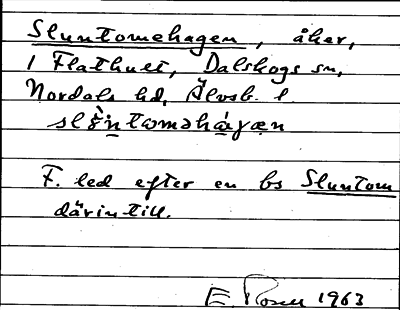 Sluntomehagen, åker,
i Flathult, Dalskogs sn,
Nordals hd, Älvsb. l.
slə̀ntωməháγæn
F. led efter en bs Sluntom
därintill.
E. Rosell 1963